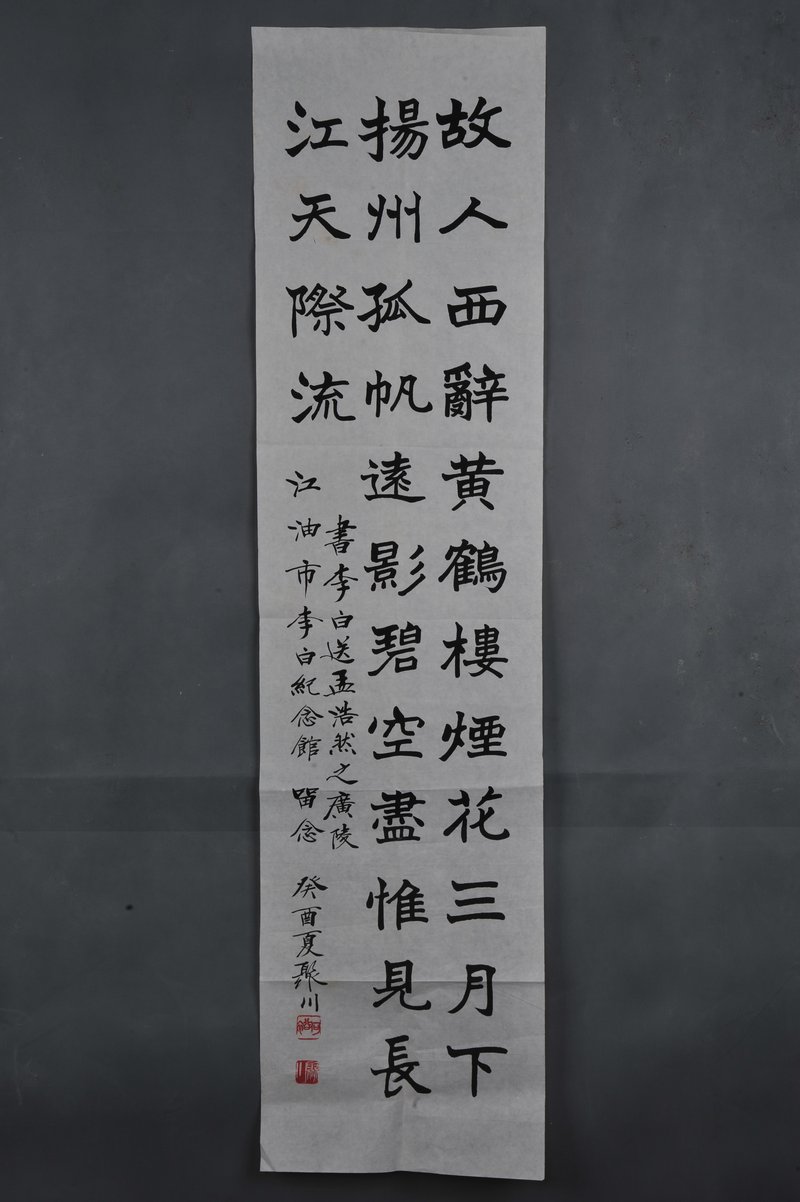 故人西辭黄鶴樓煙花三月下
揚州孤帆遠影碧空盡惟見長
江天際流
書李白送孟浩然之廣陵
江油市李白紀念館 留念
癸酉夏聚川